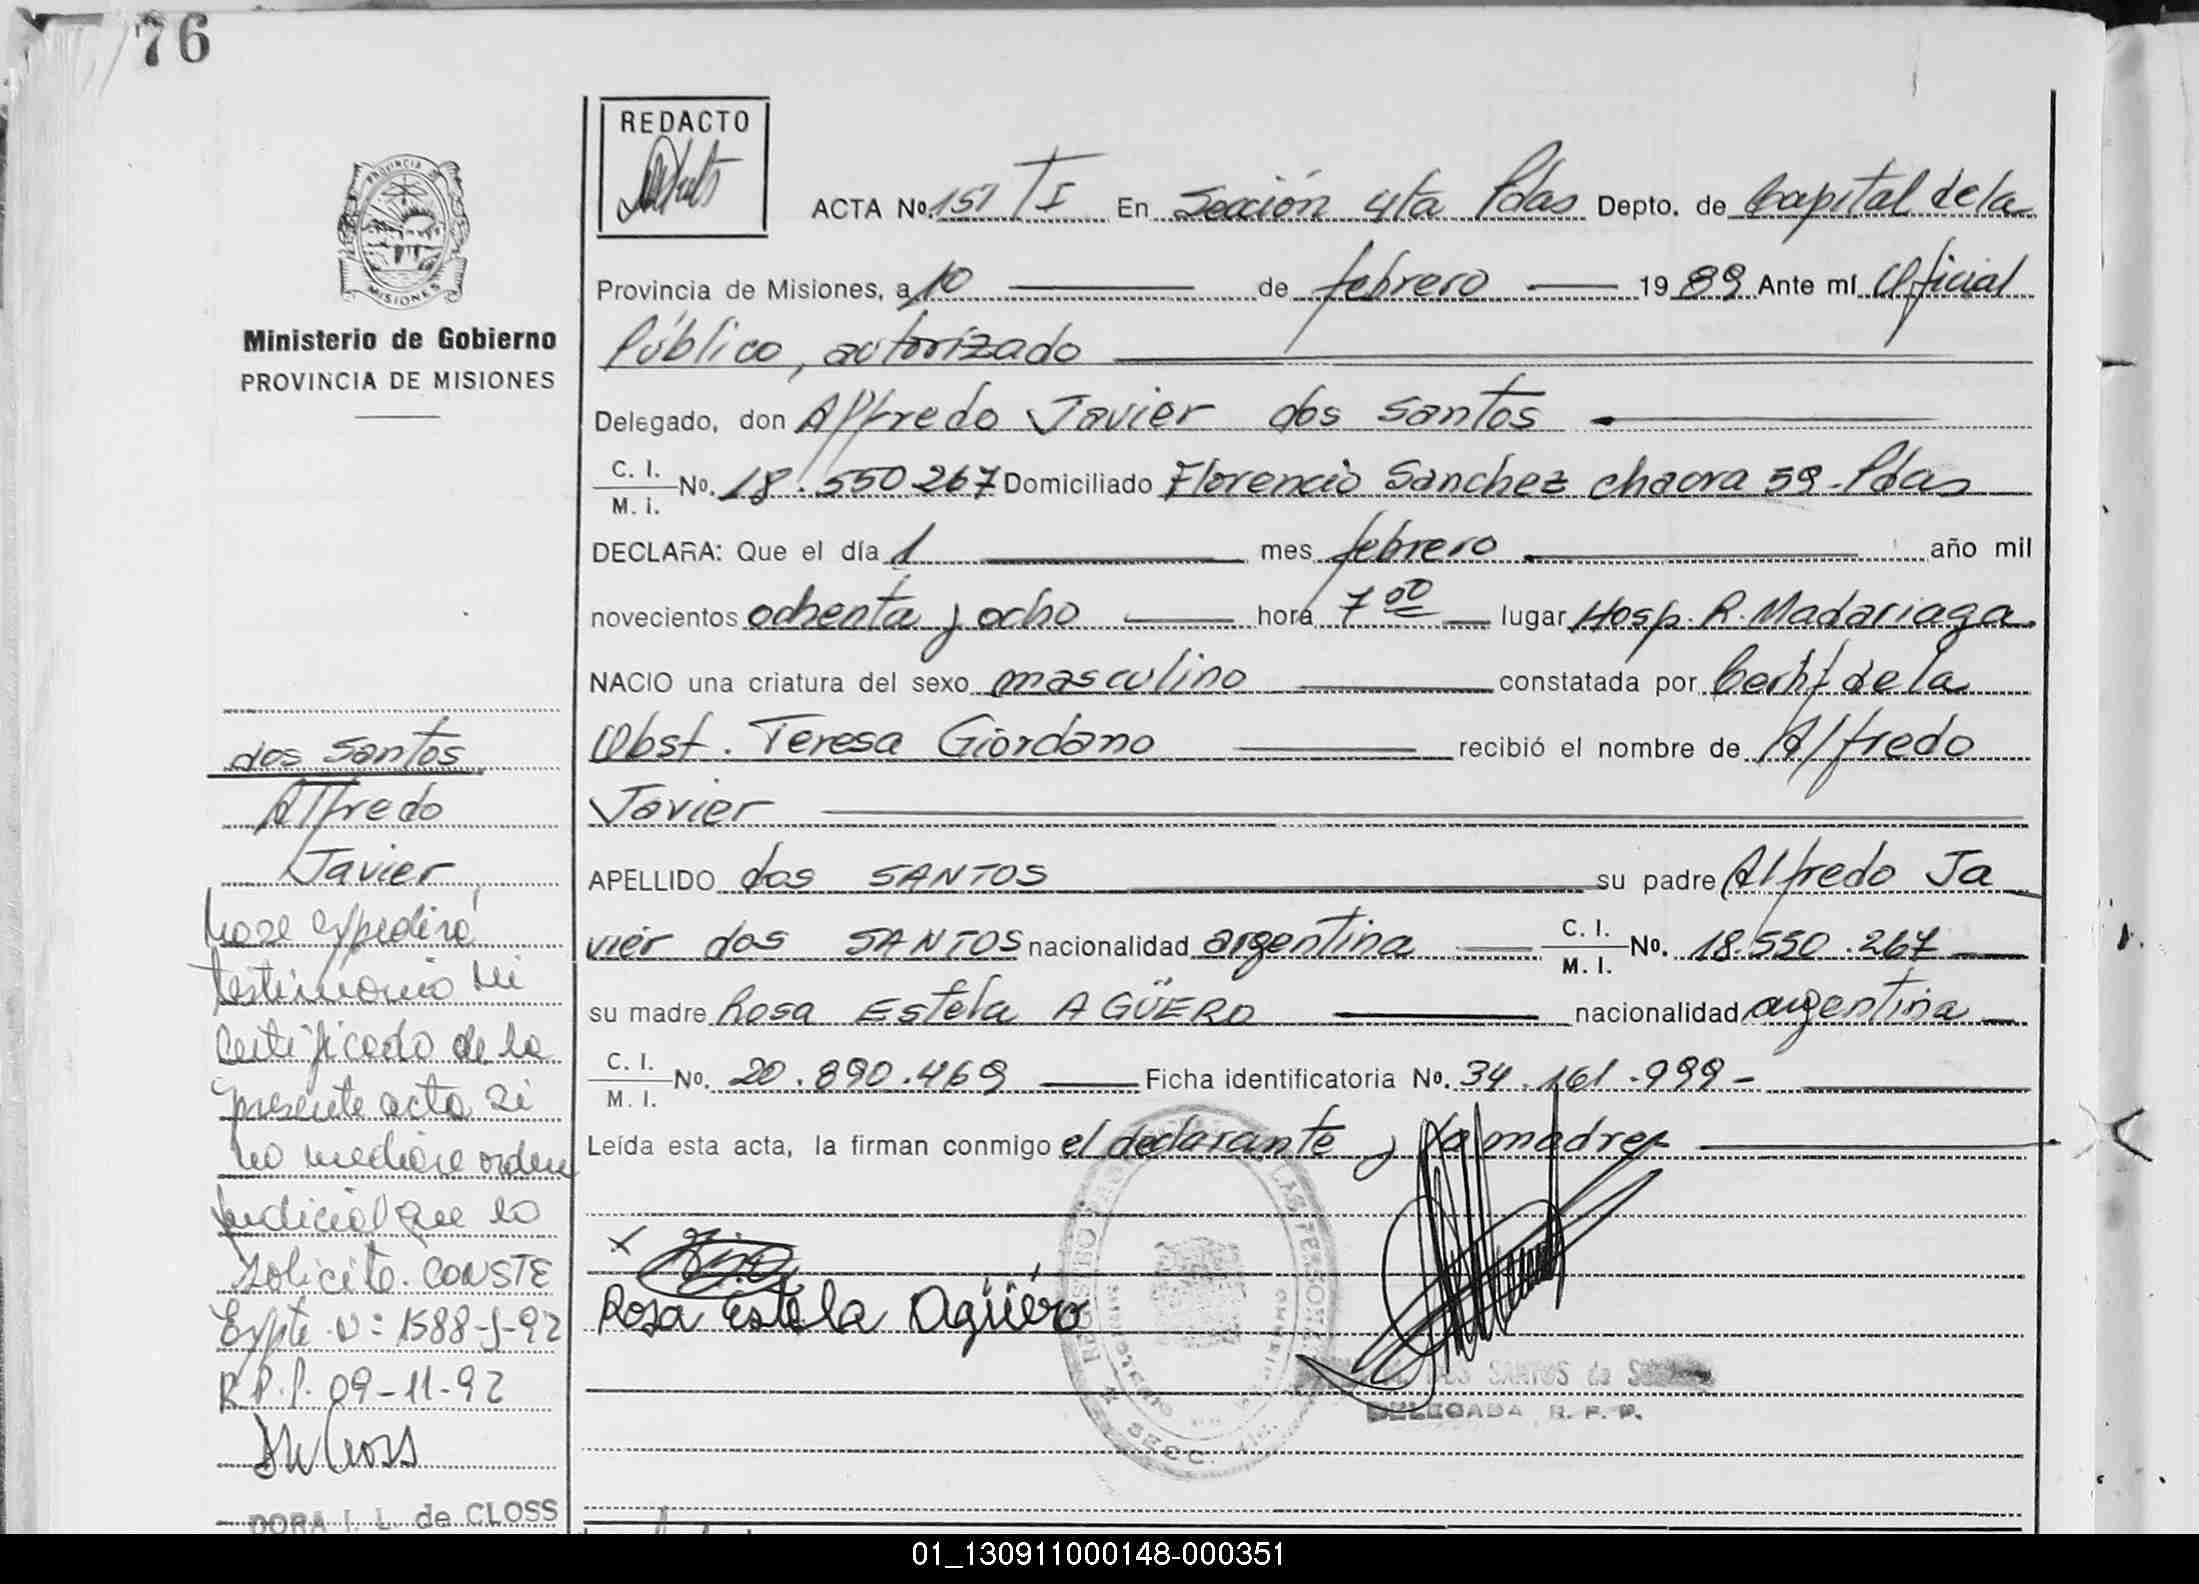 76
REDACTO
ACTA No. 151 T I En Sección 4ta Pdas Depto. de Capital de la
Provincia de Misiones, a 10 de febrero 1989 Ante mí Oficial
Público, autorizado
Delegado, don Alfredo Javier dos Santos
C. I.
M. I.
No. 18.550267 Domiciliado Florencio Sanchez chacra 59 - Pdas
DECLARA: Que el día 1 mes febrero año mil
novecientos ochenta y ocho hora 7 00 lugar Hosp. R. Madariaga.
NACIO una criatura del sexo masculino constatada por Certif de la
Obst. Teresa Giordano recibió el nombre de Alfredo
Javier
APELLIDO dos SANTOS su padre Alfredo Ja
vier dos SANTOS nacionalidad argentina C. I.
M. I.
No. 18.550.267
su madre Rosa Estela AGÜERO nacionalidad argentina
C. I.
M. I.
No. 20.890.469 Ficha identificatoria No. 34.161.999 -
Leída esta acta, la firman conmigo el declarante y la madre
Rosa Estela Agüero
DOS SANTOS de
DELEGADA R. P. P.
PROVINCIA DE
MISIONES
Ministerio de Gobierno
PROVINCIA DE MISIONES
dos Santos
Alfredo
Javier
No se expedirá
testimonio ni
certificado de la
presente acta si
no mediare orden
judicial que lo
solicite. CONSTE
Expte. Nº: 1588-J-92
R.P.P. 09-11-92
DORA I. L. de CLOSS
01_130911000148-000351